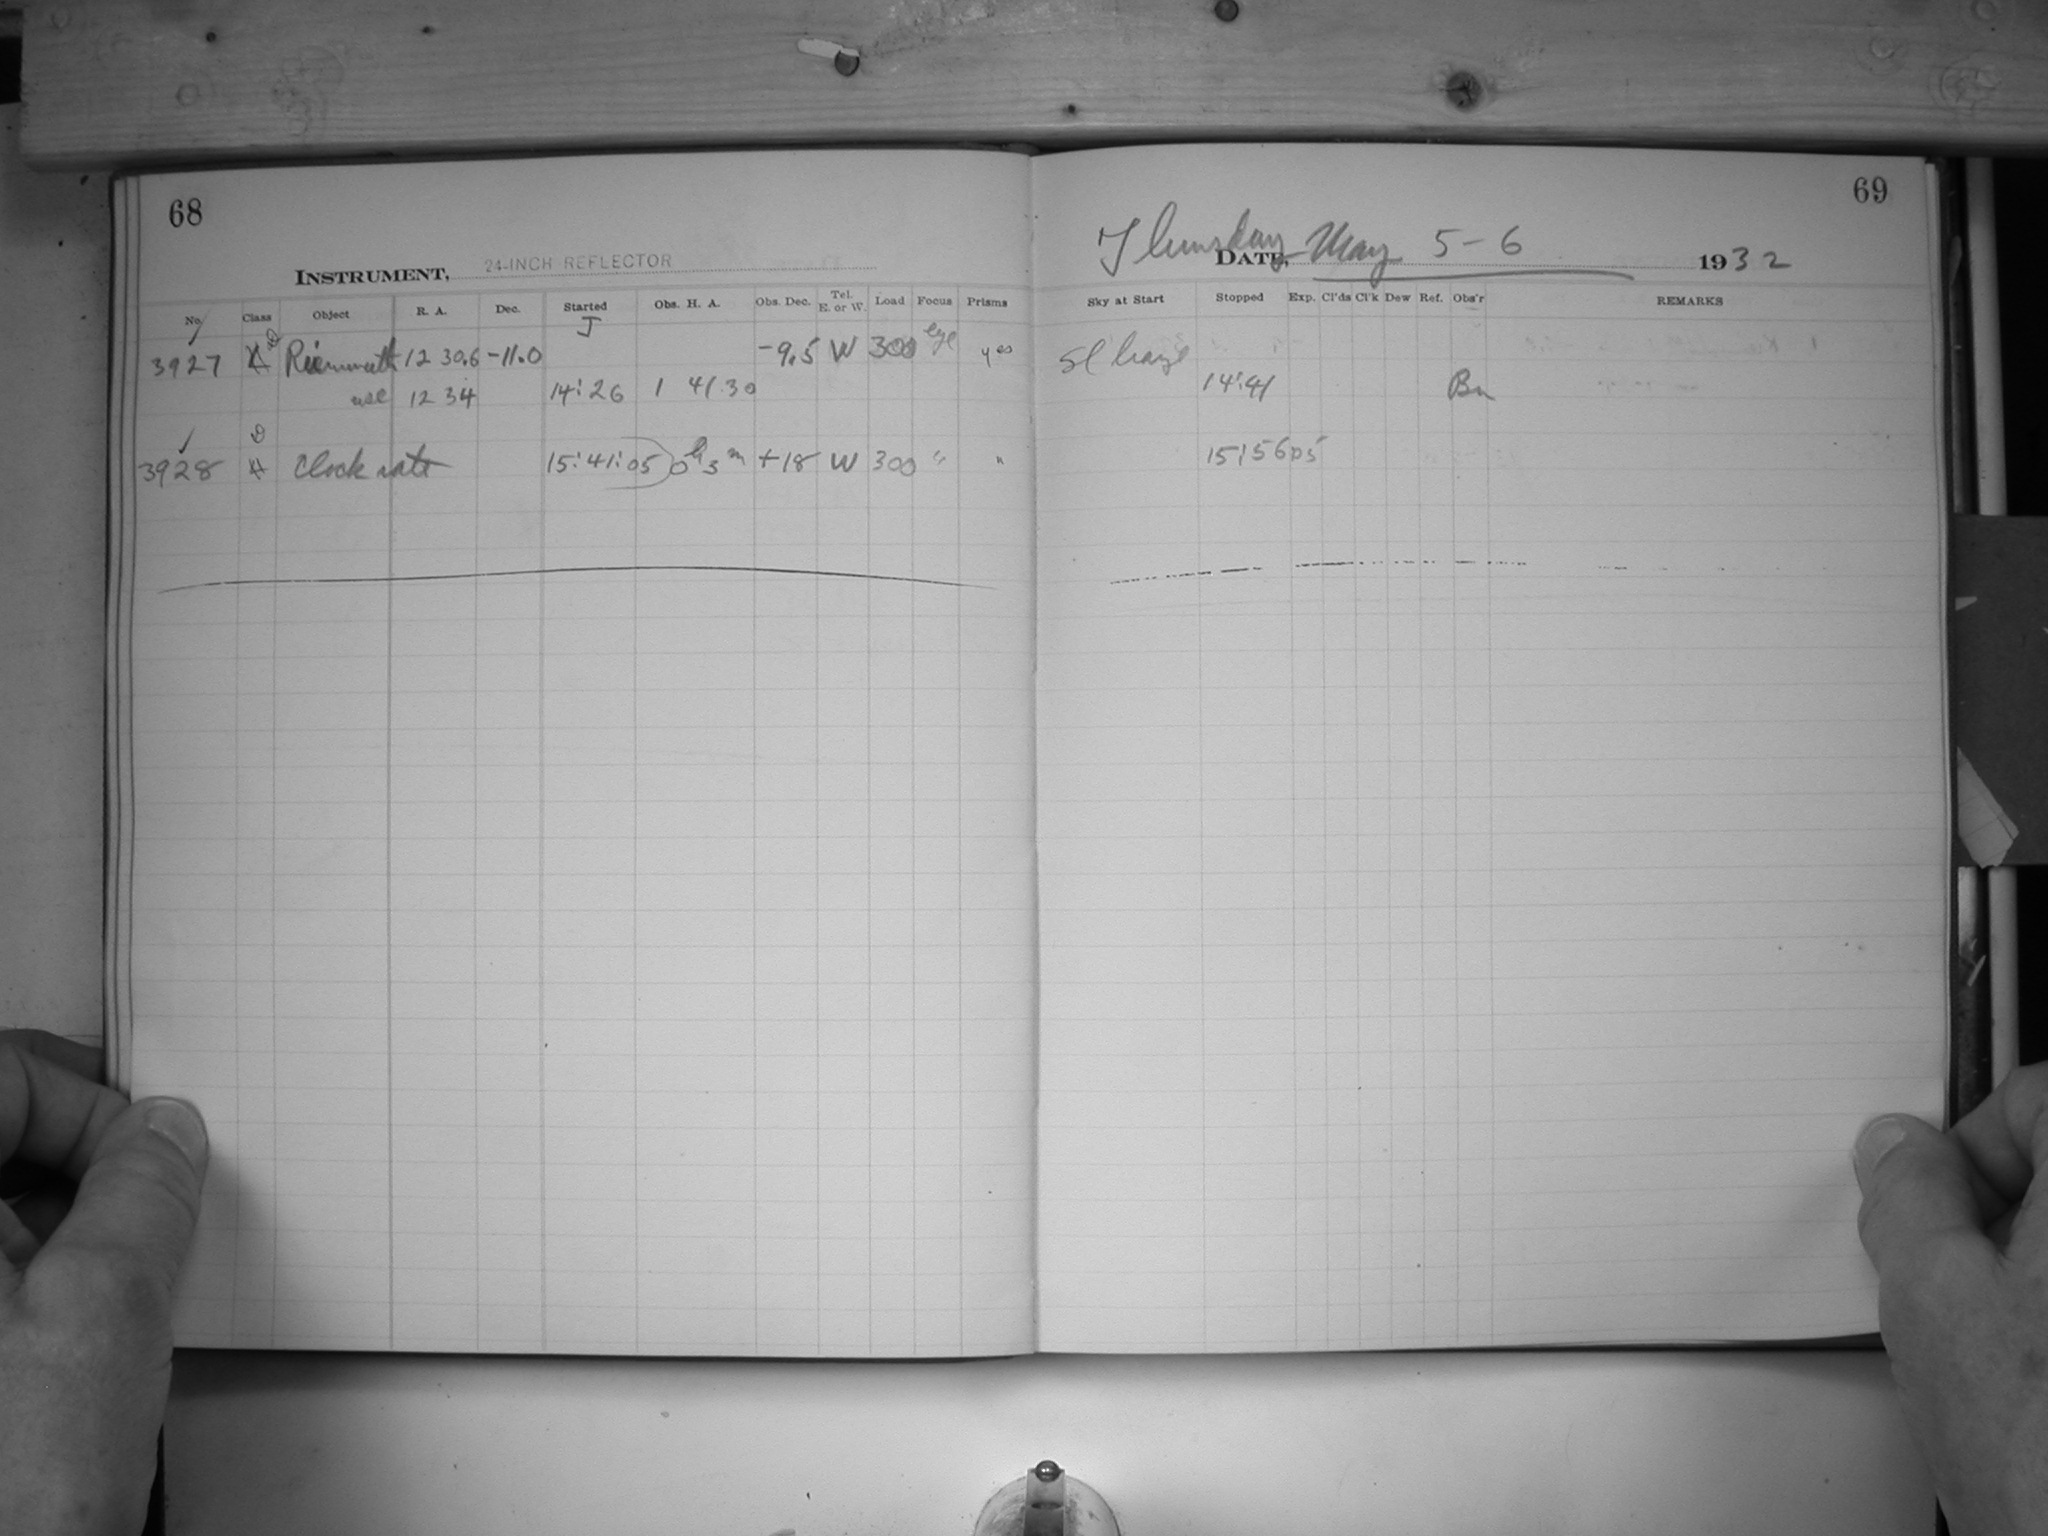 68
INSTRUMENT, 24-INCH REFLECTOR
No. Class Object R. A. Dec. Started Obs. H. A. Obs. Dec. Tel. E. or W. Load Focus Prisms
J
3927 D Reinmuth 12 30.6 -11.0 -9.5 W 300 eye yes
use 12 34 14:26 1 41.30
D
3928 Clock rate 15:41:05 0h 3m +18 W 300 " "
69
Thursday May 5-6
DATE, 1932
Sky at Start Stopped Exp. Cl'ds Cl'k Dew Ref. Obs'r REMARKS
Sl haze
14:41 Bn
15:56 05